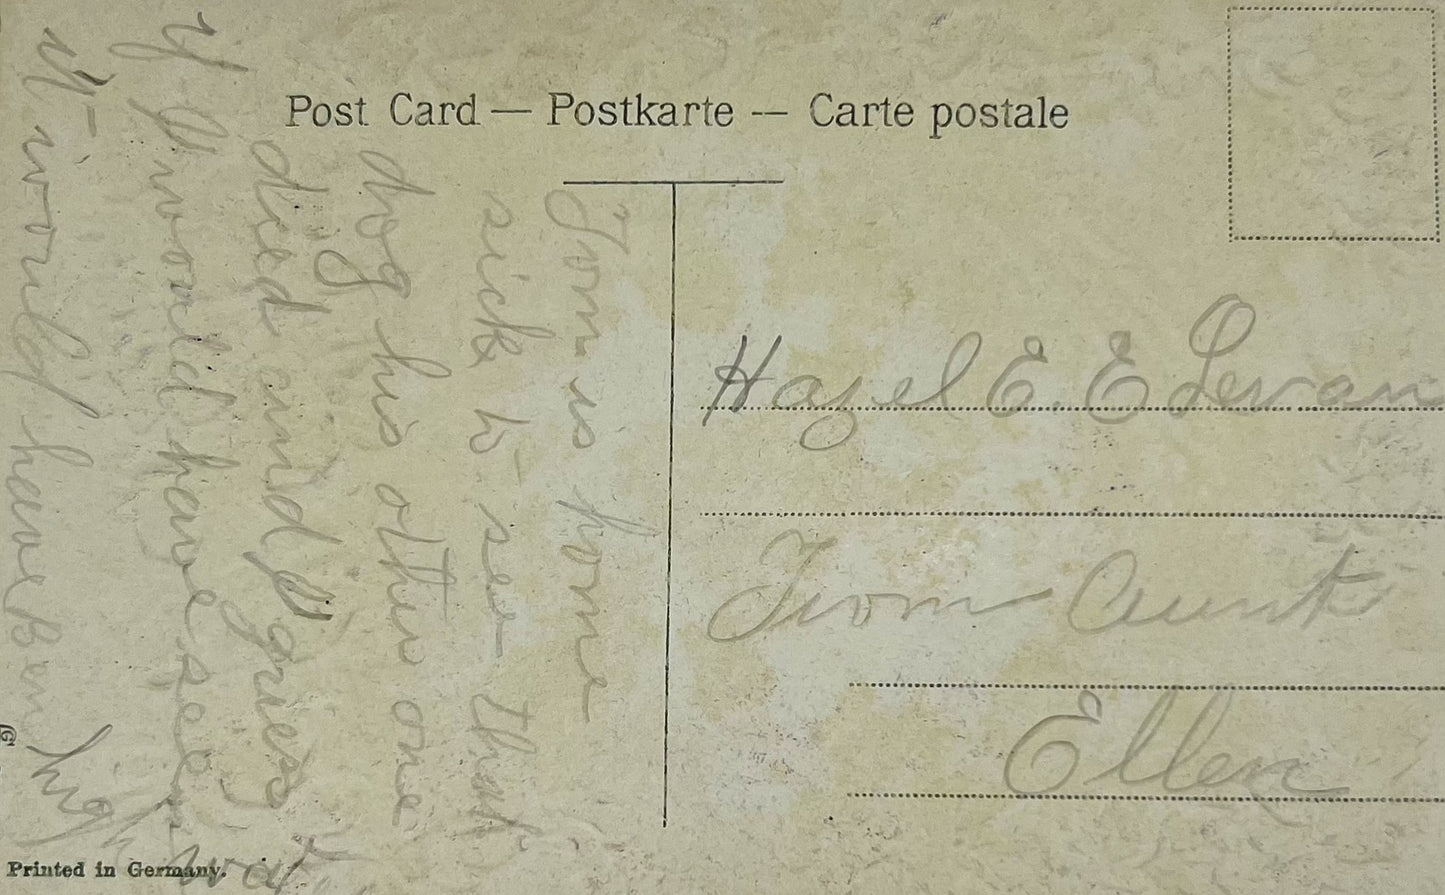 Post Card — Postkarte — Carte postale
Tom is home
sick to see that
dog his other one
died and I guess
if I would have seen
it would have ben
Hazel E. E Levan
From Aunt
Ellen
Printed in Germany.